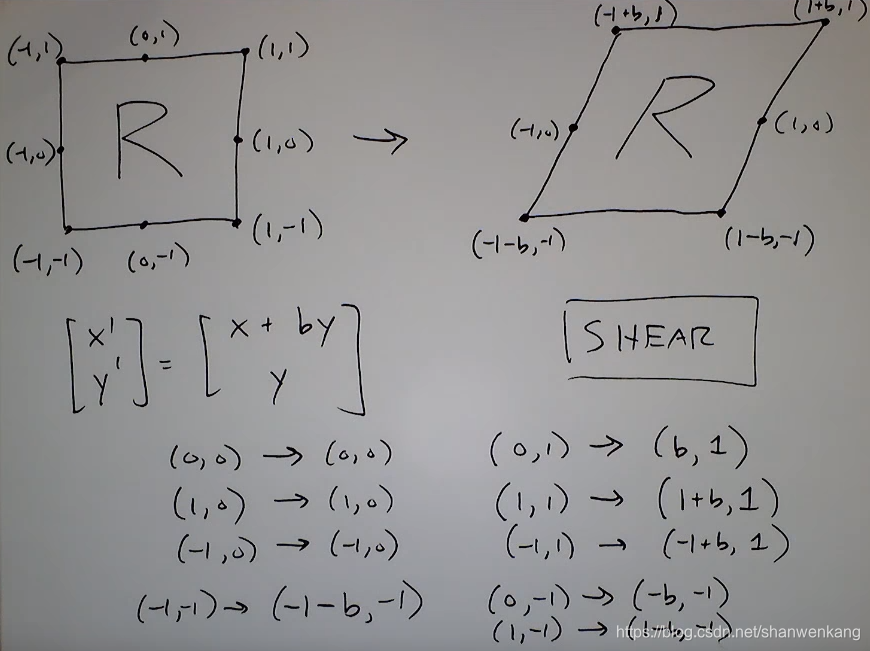 (-1+b, 1) (1+b, 1)
(-1,1) (0,1) (1,1)
R R
(-1,0) (1,0) → (-1,0) (1,0)
(-1,-1) (0,-1) (1,-1) (-1-b,-1) (1-b,-1)
[x' y'] = [x + by y]
SHEAR
(0,0) → (0,0)
(1,0) → (1,0)
(-1,0) → (-1,0)
(-1,-1) → (-1-b,-1)
(0,1) → (b,1)
(1,1) → (1+b,1)
(-1,1) → (-1+b, 1)
(0,-1) → (-b,-1)
(1,-1) → (1-b,-1)
https://blog.csdn.net/shanwenkang